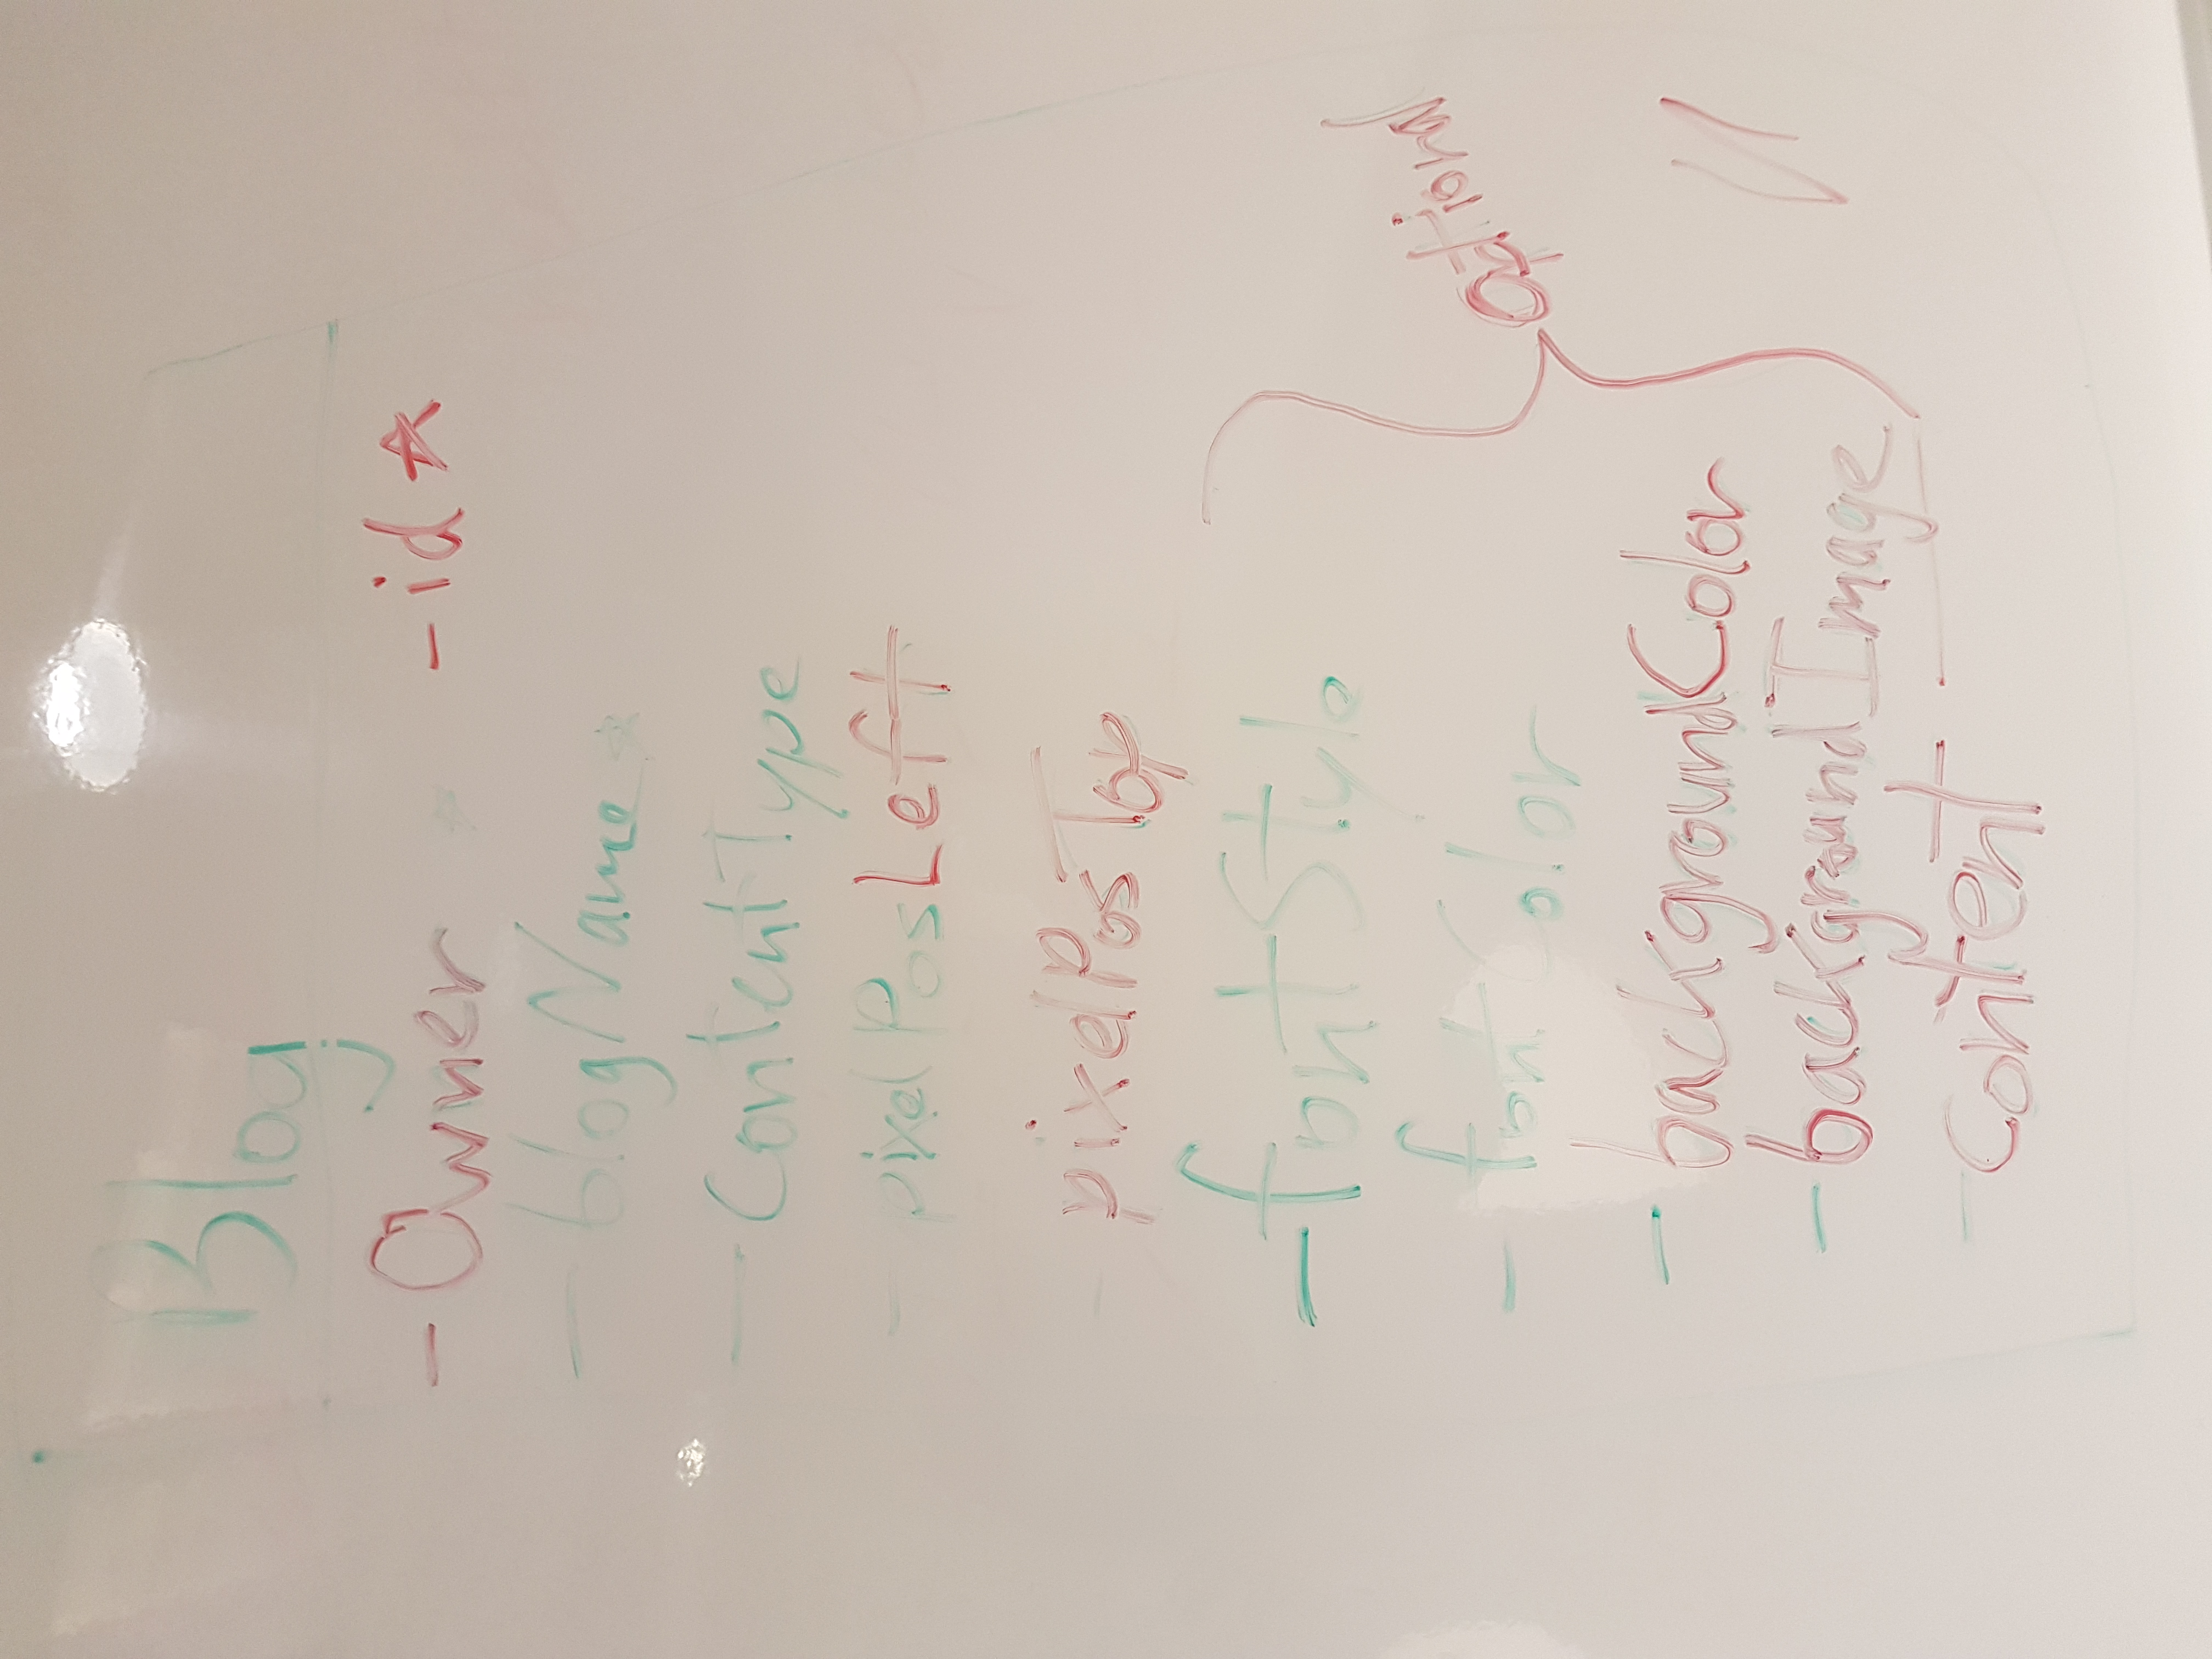 Blog
- Owner - id ☆
- blogName ☆
- ContentType
- pixelPosLeft
- pixelPosTop
- fontStyle
- fontColor
optional
- backgroundColor
- backgroundImage
- content